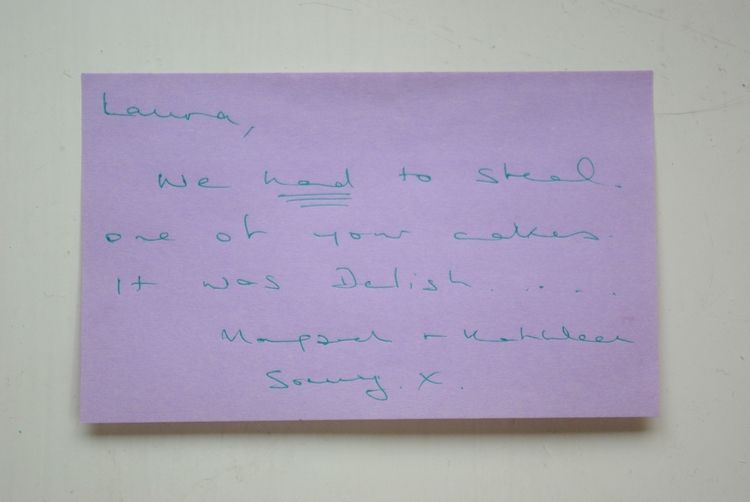 Laura,
We had to steal.
one of your cakes.
It was Delish.....
Margaret + Kathleen
Sorry. x.